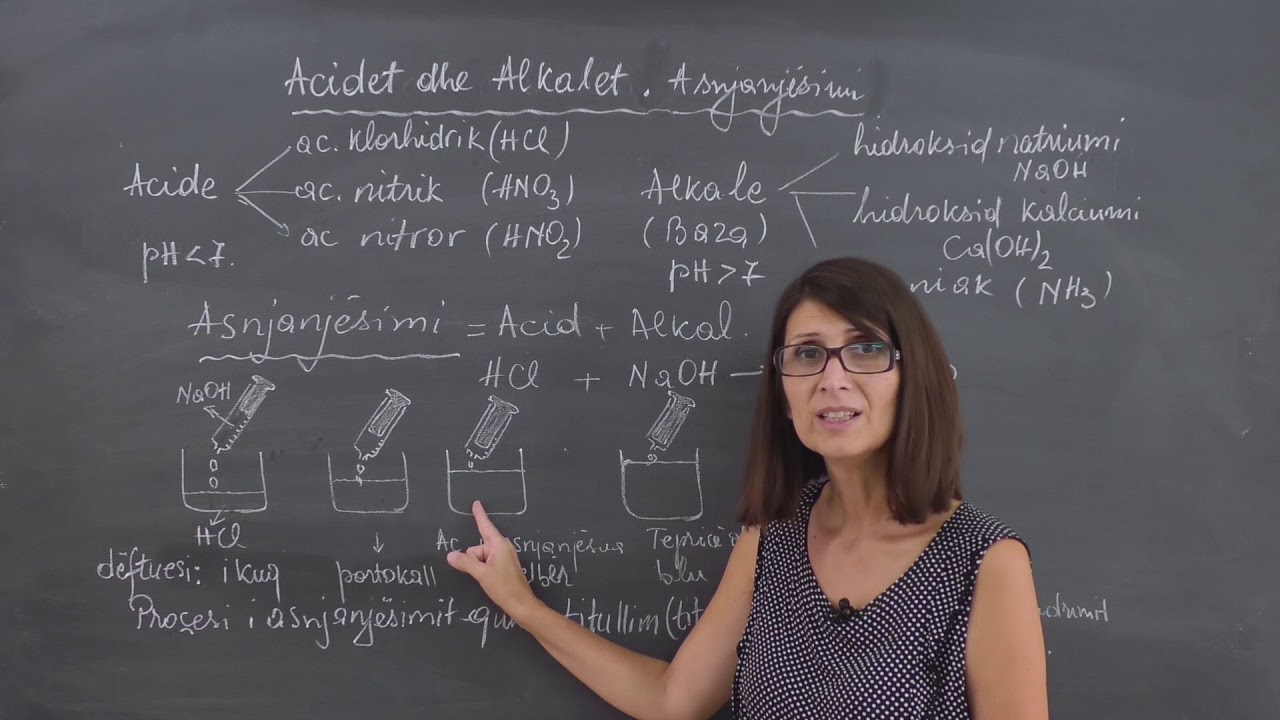 Acidet dhe Alkalet. Asnjanjësimi
Acide
ac. klorhidrik (HCl)
ac. nitrik (HNO3)
ac nitror (HNO2)
pH < 7.
Alkale
(Baza)
pH > 7
hidroksid natriumi
NaOH
hidroksid kalciumi
Ca(OH)2
niak (NH3)
Asnjanjësimi = Acid + Alkal.
HCl + NaOH
NaOH
HCl
Ac. asnjanjësua
Tepricë
dëftuesi: i kuq portokall blu
Proçesi i asnjanjësimit quh titullim (tit